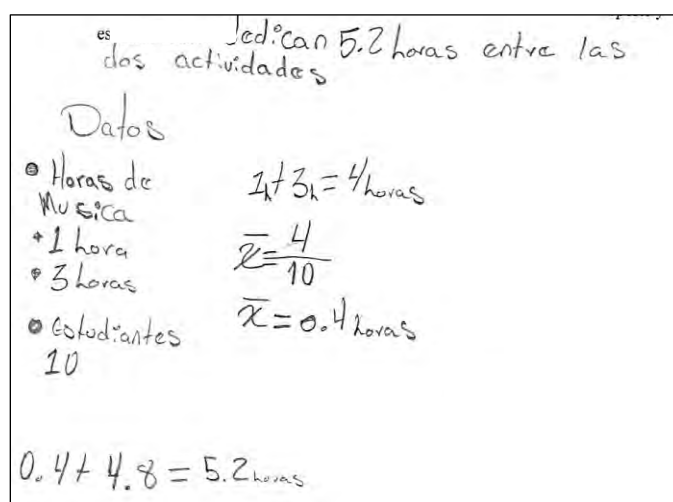 es
Dedican 5.2 horas entre las
dos actividades
Datos
• Horas de
Musica
• 1 hora
• 3 horas
• Estudiantes
10
1h + 3h = 4 horas
x̄ = 4/10
x̄ = 0.4 horas
0.4 + 4.8 = 5.2 horas